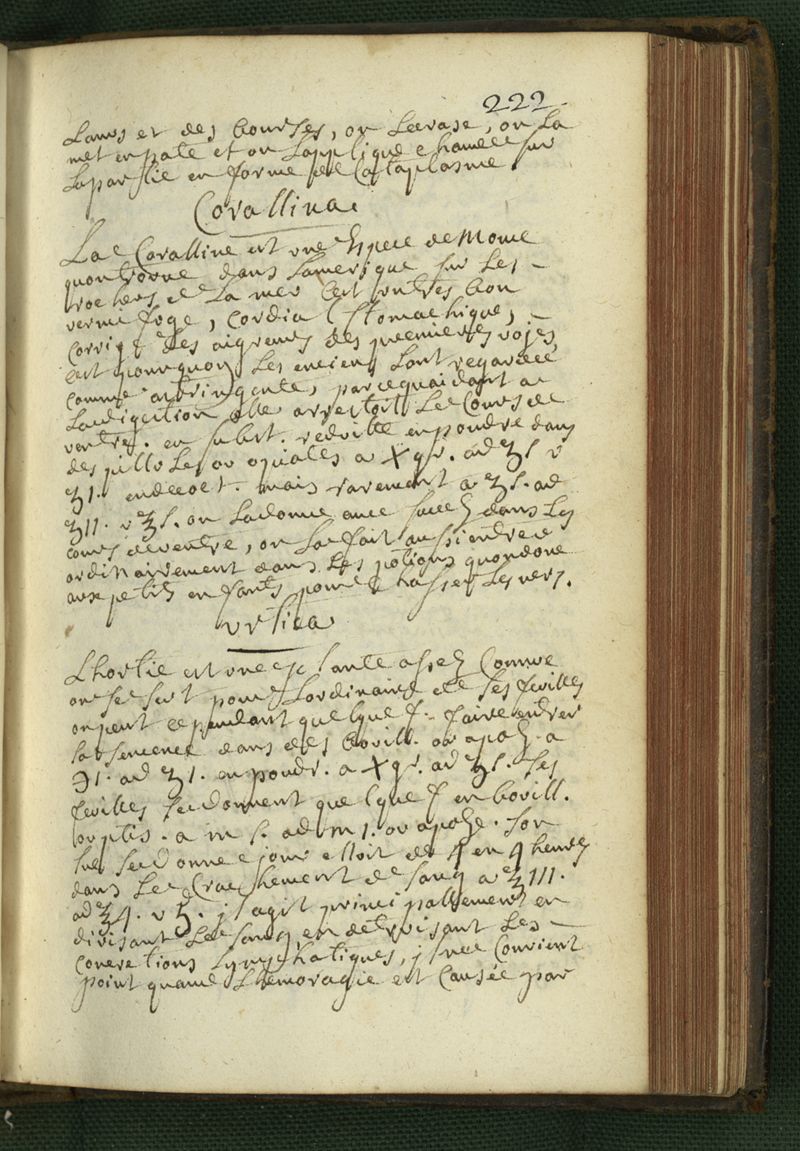 222
et des bourses, on Lecrase, on La
met en pate et on Lapplique chaude sur
La partie en forme de Cataplasme.
Corallina
La Coralline est une Espece de Mousse
quon trouve dans Lamerique sur Les
rochers de La mer Cest un tres bon
vermifuge, Cordial Stomachique,
Corrige Les aigreurs des premieres voÿes,
Cest pourquoy Les enciens Lont regardée
comme astringente, parcequaidant a
La digestion elle arrestoit Le Cours de
ventre. en subst. reduitte en poudre dans
des pillules ou opiates a X gr. ad ʒ ſ v
ʒ1. en decoct. mais rarement a ʒ ſ. ad
ʒ11. v ʒ ſ. on La donne avec succez dans Les
cours de ventre, on La fait aussi entrer
ordinairement dans Les potions quon done
aux petits enfants pour Chasser Les vers.
vrtica
Lhortie est une plante assez Connue
on se sert pour Lordinaire de ses feuilles
on peut cependant quelque f. faire entrer
La semence dans des bouill. ou apoz. a
℈1. ad ʒ1. en poudr. a X gr. ad ʒ ſ. Les
feuilles se donnent quelque f en bouill.
ou ptis. a m ſ. ad m 1. ou apoze. Son
suc se donne de 4 en 4 heures
dans Le Crachement de sang a ℥111.
ad ℥4. v 5. jl agit principallement en
divisant Le sang en detruisant Les
Concretions Lymphatiques, jl ne Convient
point quand Lhemoragie est Causée par